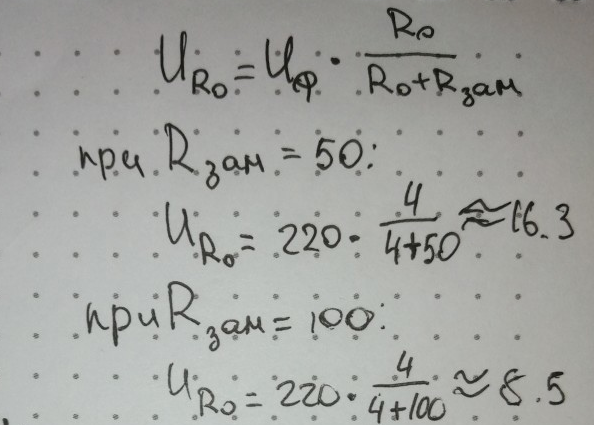 U_R₀ = U_ф · R₀ / (R₀ + R_зам)
при R_зам = 50:
U_R₀ = 220 · 4 / (4+50) ≈ 16.3
при R_зам = 100:
U_R₀ = 220 · 4 / (4+100) ≈ 8.5